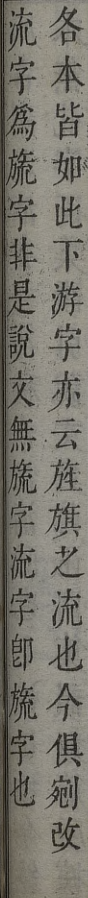 各本皆如此下游字亦云旌旗之流也今俱剜改
流字爲旒字非是說文無旒字流字卽旒字也